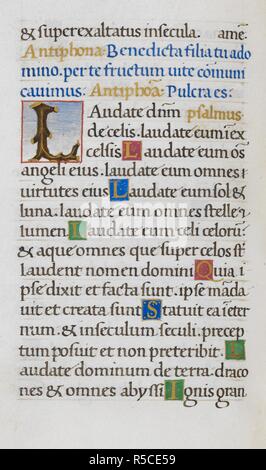 & superexaltatus in secula. amē.
Antiphona. Benedicta filia tu a do
mino. per te fructum uite cōmuni
cauimus. Antiphōa. Pulcra es.
Laudate dnm psalmus
de celis. laudate eum i ex
celsis Laudate eum oēs
angeli eius. laudate eum omnes
uirtutes eius Laudate eum sol &
luna. laudate eum omnes stelle
lumen Laudate eum celi celorū
& aque omnes que super celos st̄
laudent nomen domini Quia i
pse dixit et facta sunt. ipse māda
uit et creata sunt Statuit ea ī eter
num. & in seculum seculi. precep
tum posuit et non preteribit. L
audate dominum de terra. draco
nes & omnes abyssi Ignis gran
alamy
R5CE59